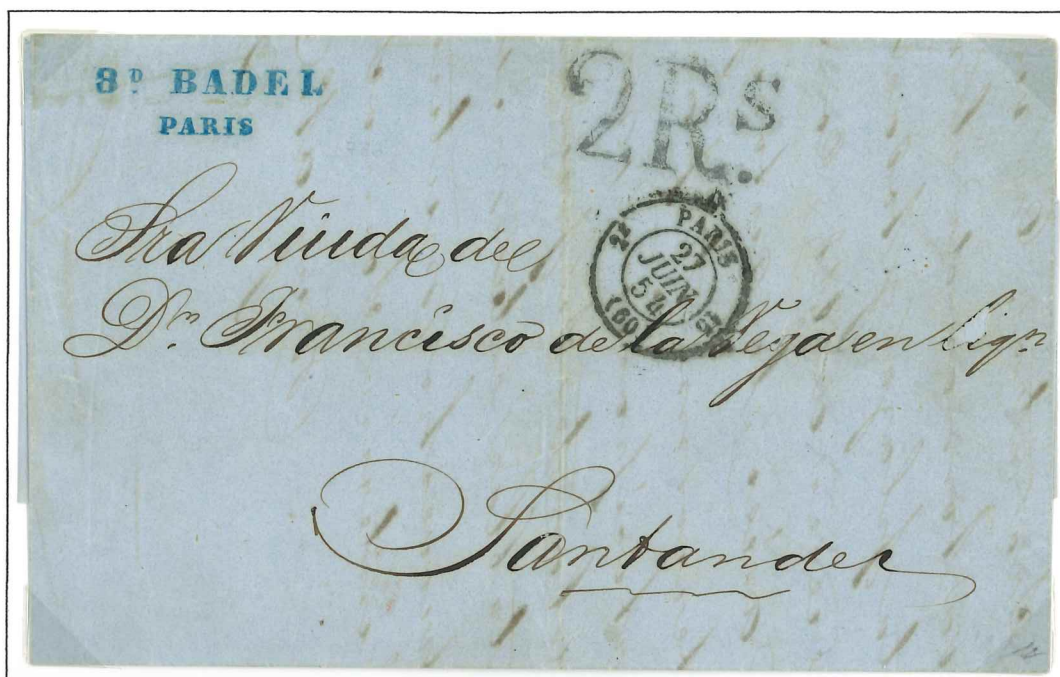 8D BADEL
PARIS
2Rs.
PARIS
27
JUIN
54
(60)
Sra Viuda de
Dn. Francisco de la Vega en Liqn
Santander